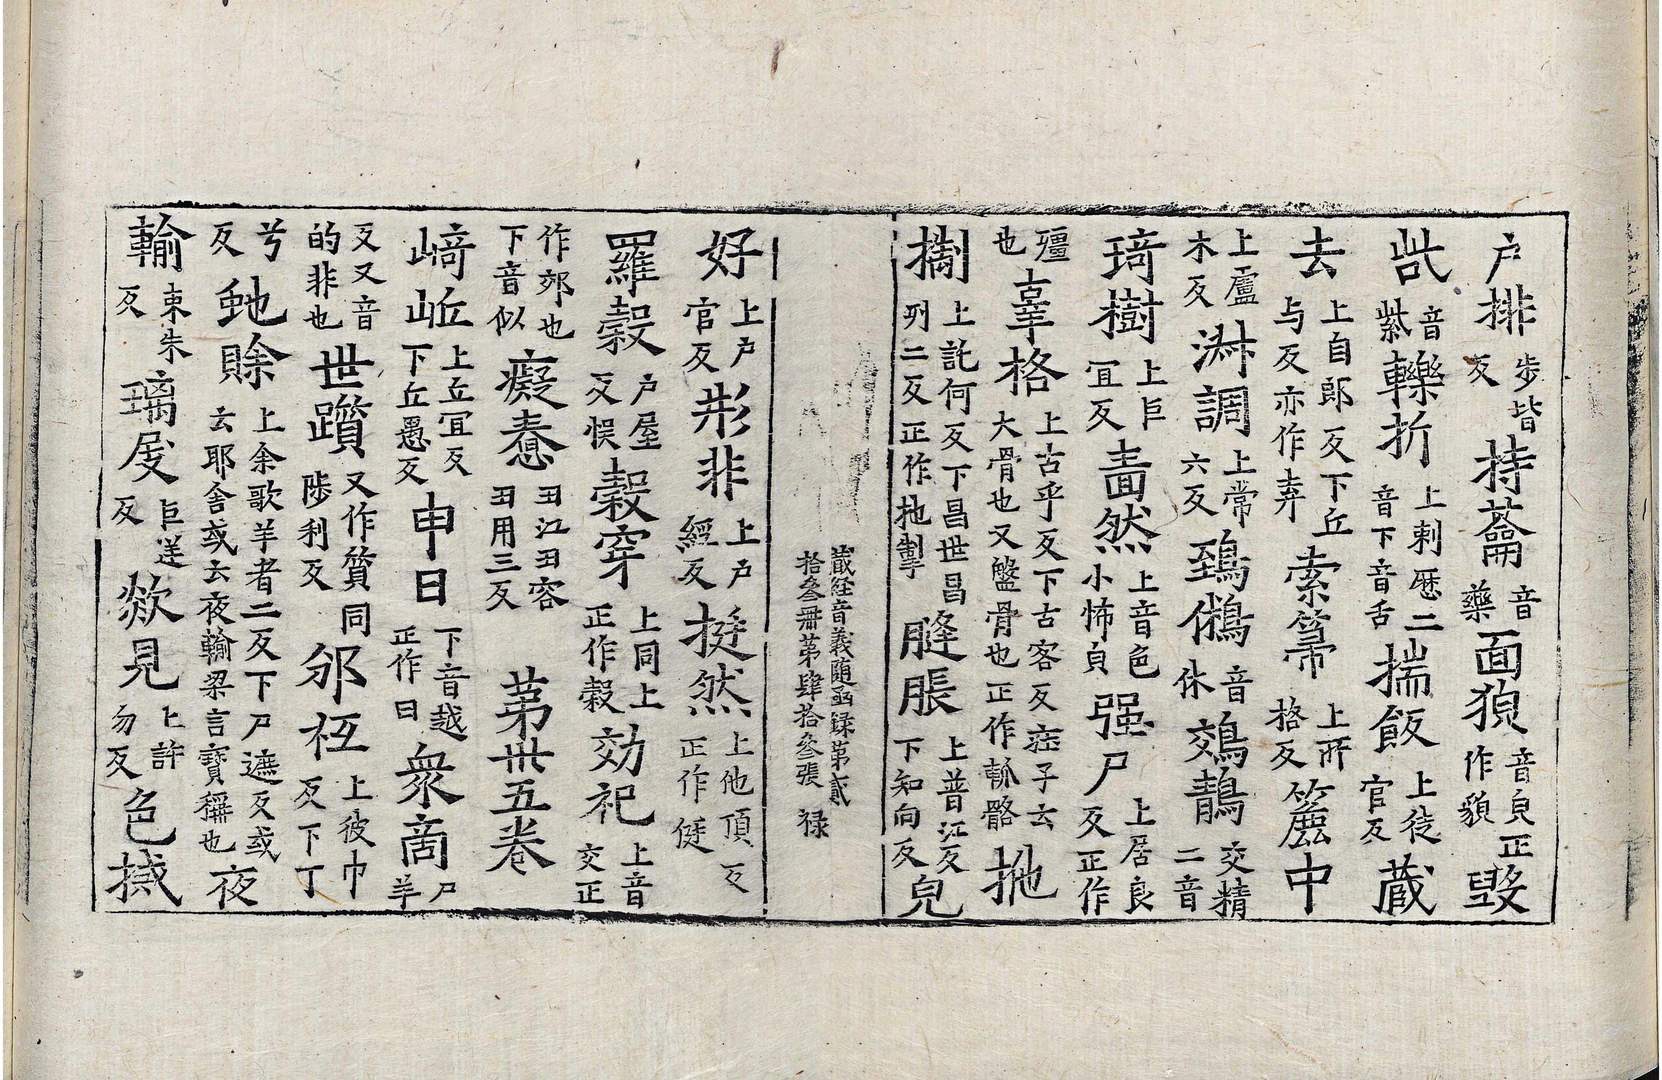 户排步皆反持蘥音藥面㺃音皃正作貌毀
呰音紫轢折上刺厯二音下音舌揣飯上徒官反蔵
去上自郎反下丘与反亦作弆索㡓上所格反簏中
上盧木反淋調上常六反鵄鵂音休鵁鶄交精二音
琦樹上巨宜反啬然上音色小怖皃强尸上居良反正作
殭也辜格上古乎反下古客反莊子云大骨也又盤骨也正作軱骼拖
㨨上託何反下昌世昌列二反正作拖掣䏺脹上普江反下知向反皃
藏経音義随函録第貳拾叄冊第肆拾叄張 禄
好上户官反形非上户經反挺然上他頂反正作侹
羅縠户屋反悮穀穿上同上正作穀効祀上音交正
作郊也下音似癡惷丑江丑容丑用三反 第丗五卷
﨑岴上丘宜反下丘愚反申日下音越正作曰衆啇尸羊
反又音的非也世躓又作質同陟利反邠柸上彼巾反下丁
兮反虵賖上余歌羊者二反下尸遮反或云耶舍或云夜輸梁言寶稱也夜
輸束朱反璃屐巨逆反欻見上許勿反色撼